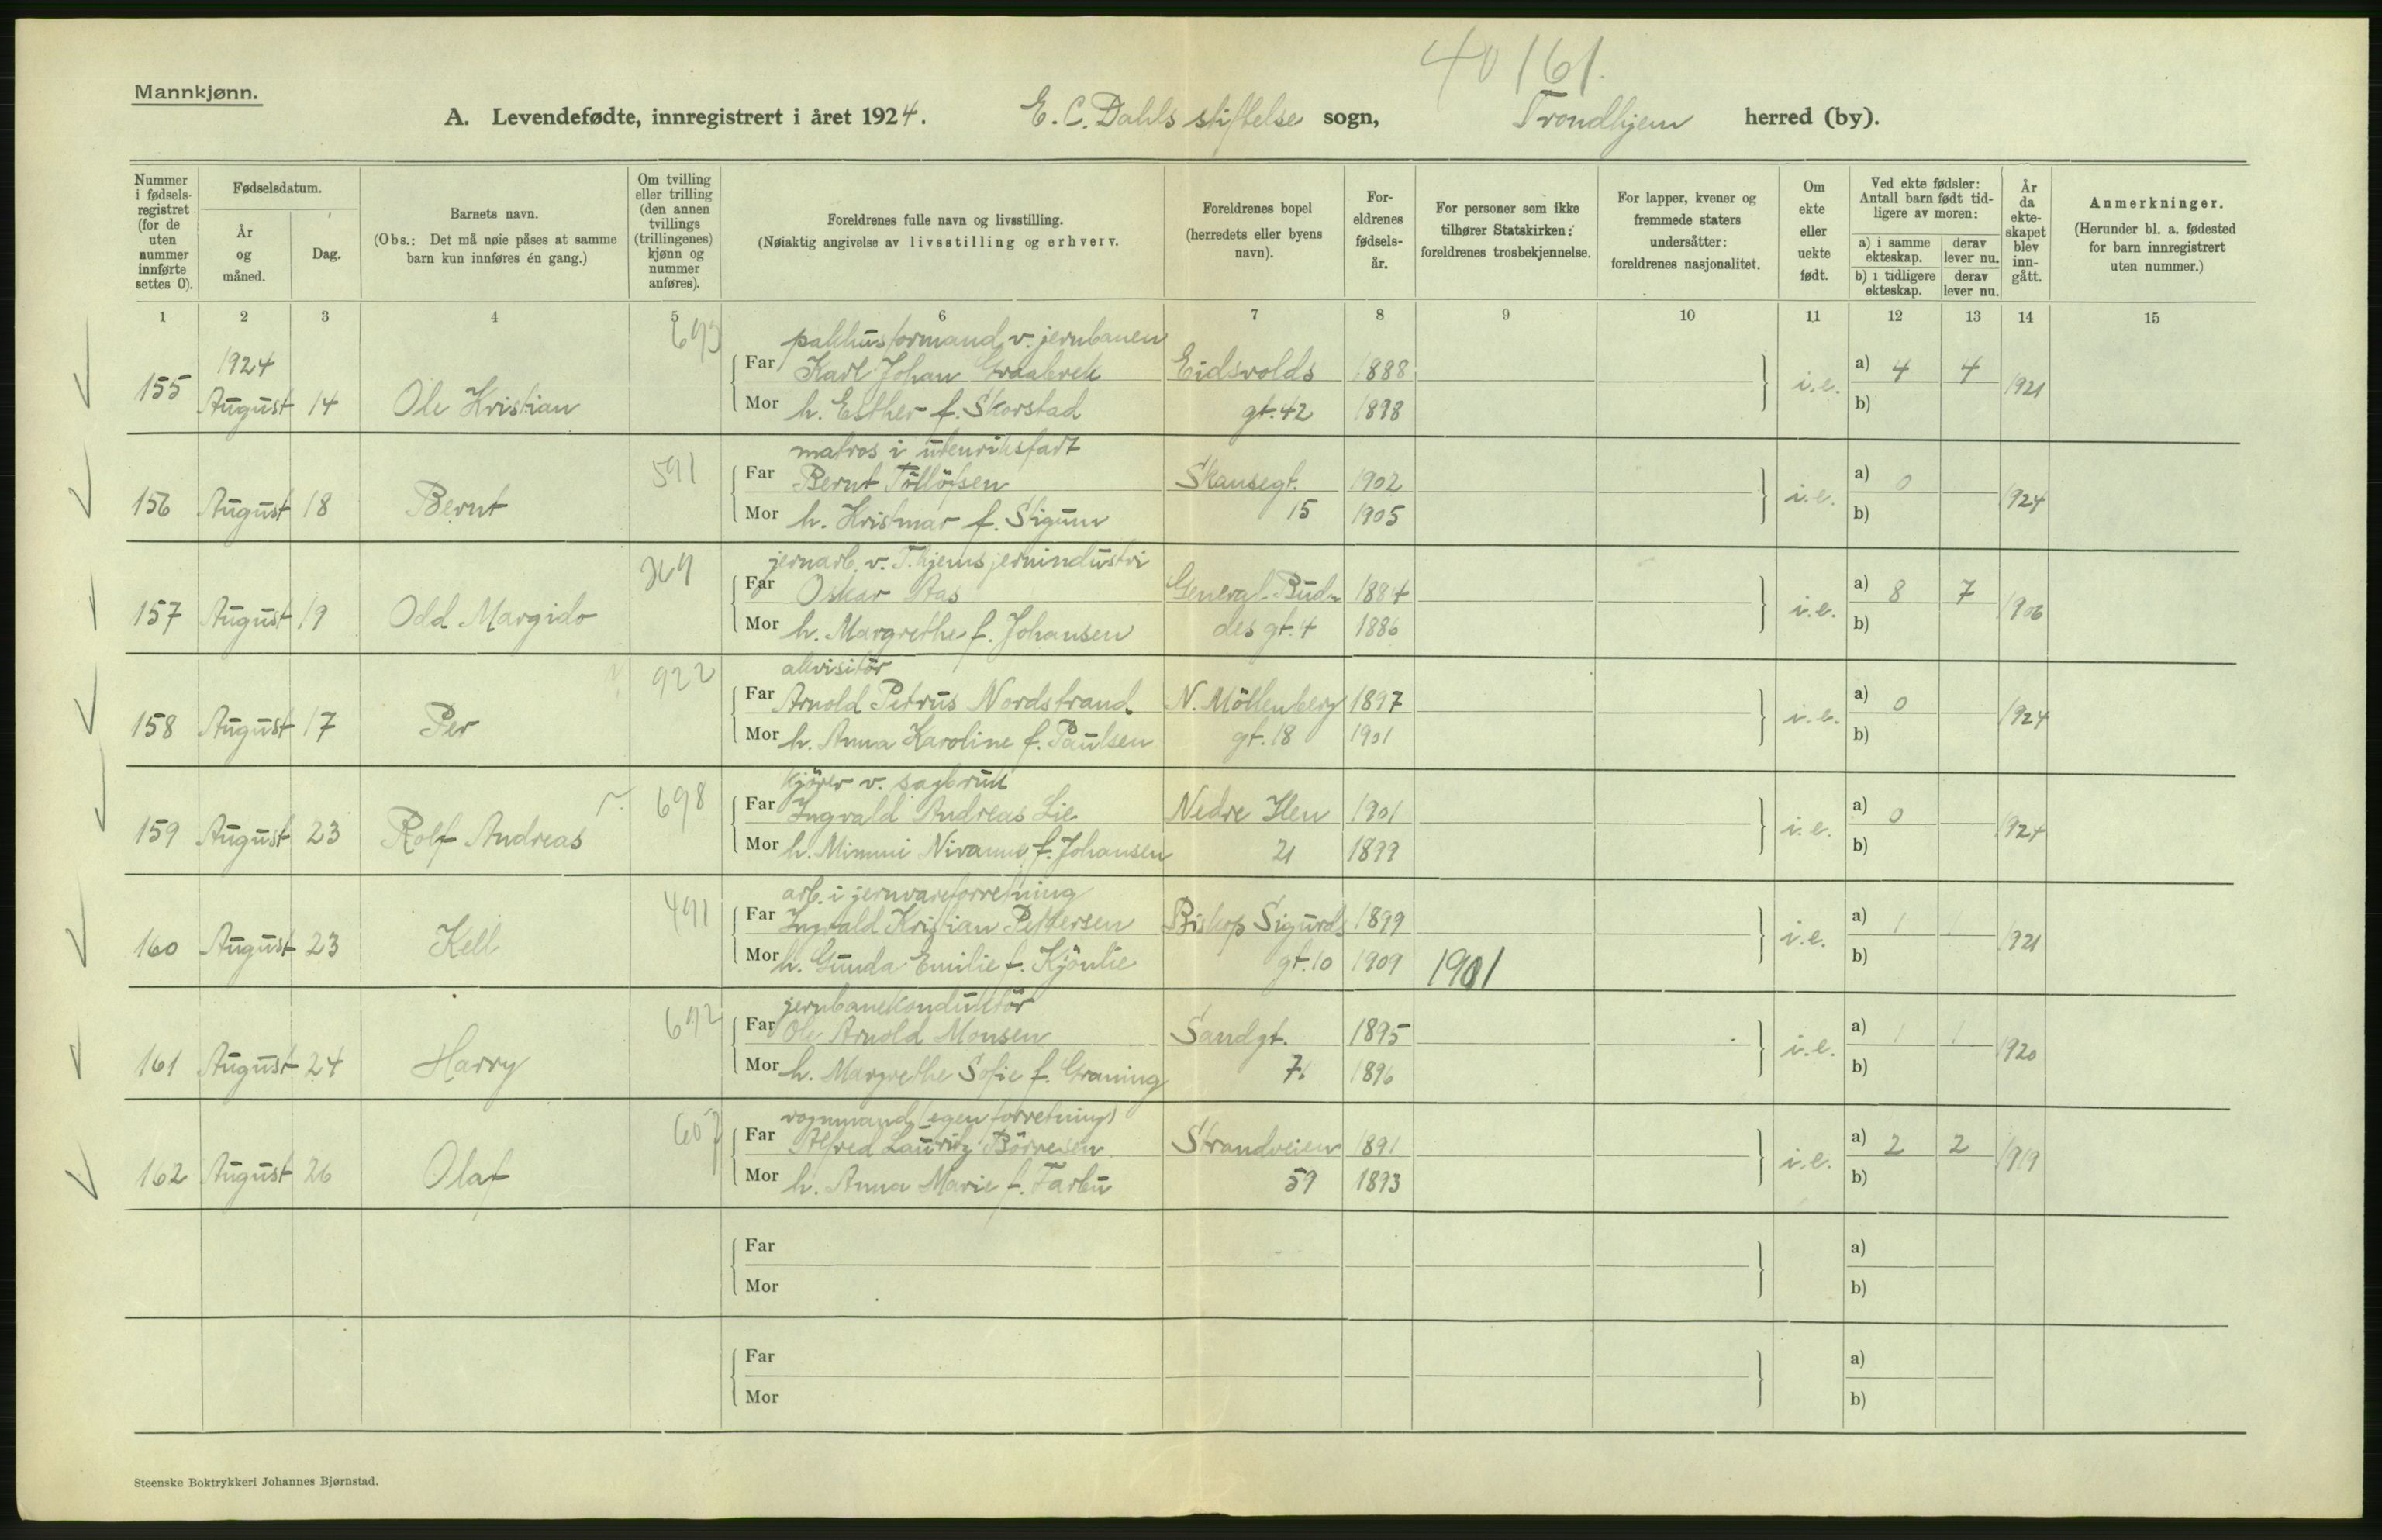 40161.
Mannkjønn.
A. Levendefødte, innregistrert i året 1924. E. C. Dahls stiftelse sogn, Trondhjem herred (by).
Nummer i fødsels- registret (for de uten nummer innførte settes 0).
Fødselsdatum.
År og måned.
Dag.
Barnets navn.
(Obs.: Det må nøie påses at samme barn kun innføres én gang.)
Om tvilling eller trilling (den annen tvillings (trillingenes) kjønn og nummer anføres).
Foreldrenes fulle navn og livsstilling.
(Nøiaktig angivelse av livsstilling og erhverv.
Foreldrenes bopel (herredets eller byens navn).
For- eldrenes fødsels- år.
For personer som ikke tilhører Statskirken: foreldrenes trosbekjennelse.
For lapper, kvener og fremmede staters undersåtter: foreldrenes nasjonalitet.
Om ekte eller uekte født.
Ved ekte fødsler: Antall barn født tid- ligere av moren:
a) i samme ekteskap.
derav lever nu.
b) i tidligere ekteskap.
derav lever nu.
År da ekte- skapet blev inn- gått.
Anmerkninger.
(Herunder bl. a. fødested for barn innregistrert uten nummer.)
1 2 3 4 5 6 7 8 9 10 11 12 13 14 15
693 pakhusformand v. jernbanen
1924 Far Karl Johan Graabrek Eidsvolds 1888 a) 4 4
155 August 14 Ole Kristian Mor h. Esther f. Skorstad gt. 42 1898 i.e. b) 1921
591 matros i utenriksfart
Far Bernt Tollöfsen Skansegt. 1902 a) 0
156 August 18 Bernt Mor h. Kristmar f. Stigum 15 1905 i.e. b) 1924
269 jernarb. v. T.hjems jernindustri
Far Oskar Aas General Bud- 1884 a) 8 7
157 August 19 Odd Margido Mor h. Margrethe f. Johansen des gt. 4 1886 i.e. b) 1906
922 akvisitör
Far Arnold Petrus Nordstrand N. Möllenberg 1897 a) 0
158 August 17 Per Mor h. Anna Karoline f. Paulsen gt. 18 1901 i.e. b) 1924
698 kjörer v. sagbruk
Far Ingvald Andreas Lie Nedre Ilen 1901 a) 0
159 August 23 Rolf Andreas Mor h. Mimmi f. Johansen 21 1899 i.e. b) 1924
491 arb. i jernvareforretning
Far Ingvald Kristian Pettersen Biskop Sigurds 1899 a) 1 1
160 August 23 Kell Mor h. Gunda Emilie f. gt. 10 1909 1901 i.e. b) 1921
692 jernbanekonduktör
Far Ole Arnold Monsen Sandgt. 1895 a) 1 1
161 August 24 Harry Mor h. Margrethe Sofie f. Graning 71 1896 i.e. b) 1920
607 vognmand (egen forretning)
Far Alfred Lauritz Börresen Strandveien 1891 a) 2 2
162 August 26 Olaf Mor h. Anna Marie f. Farbu 59 1893 i.e. b) 1919
Far a)
Mor b)
Far a)
Mor b)
Steenske Boktrykkeri Johannes Bjørnstad.